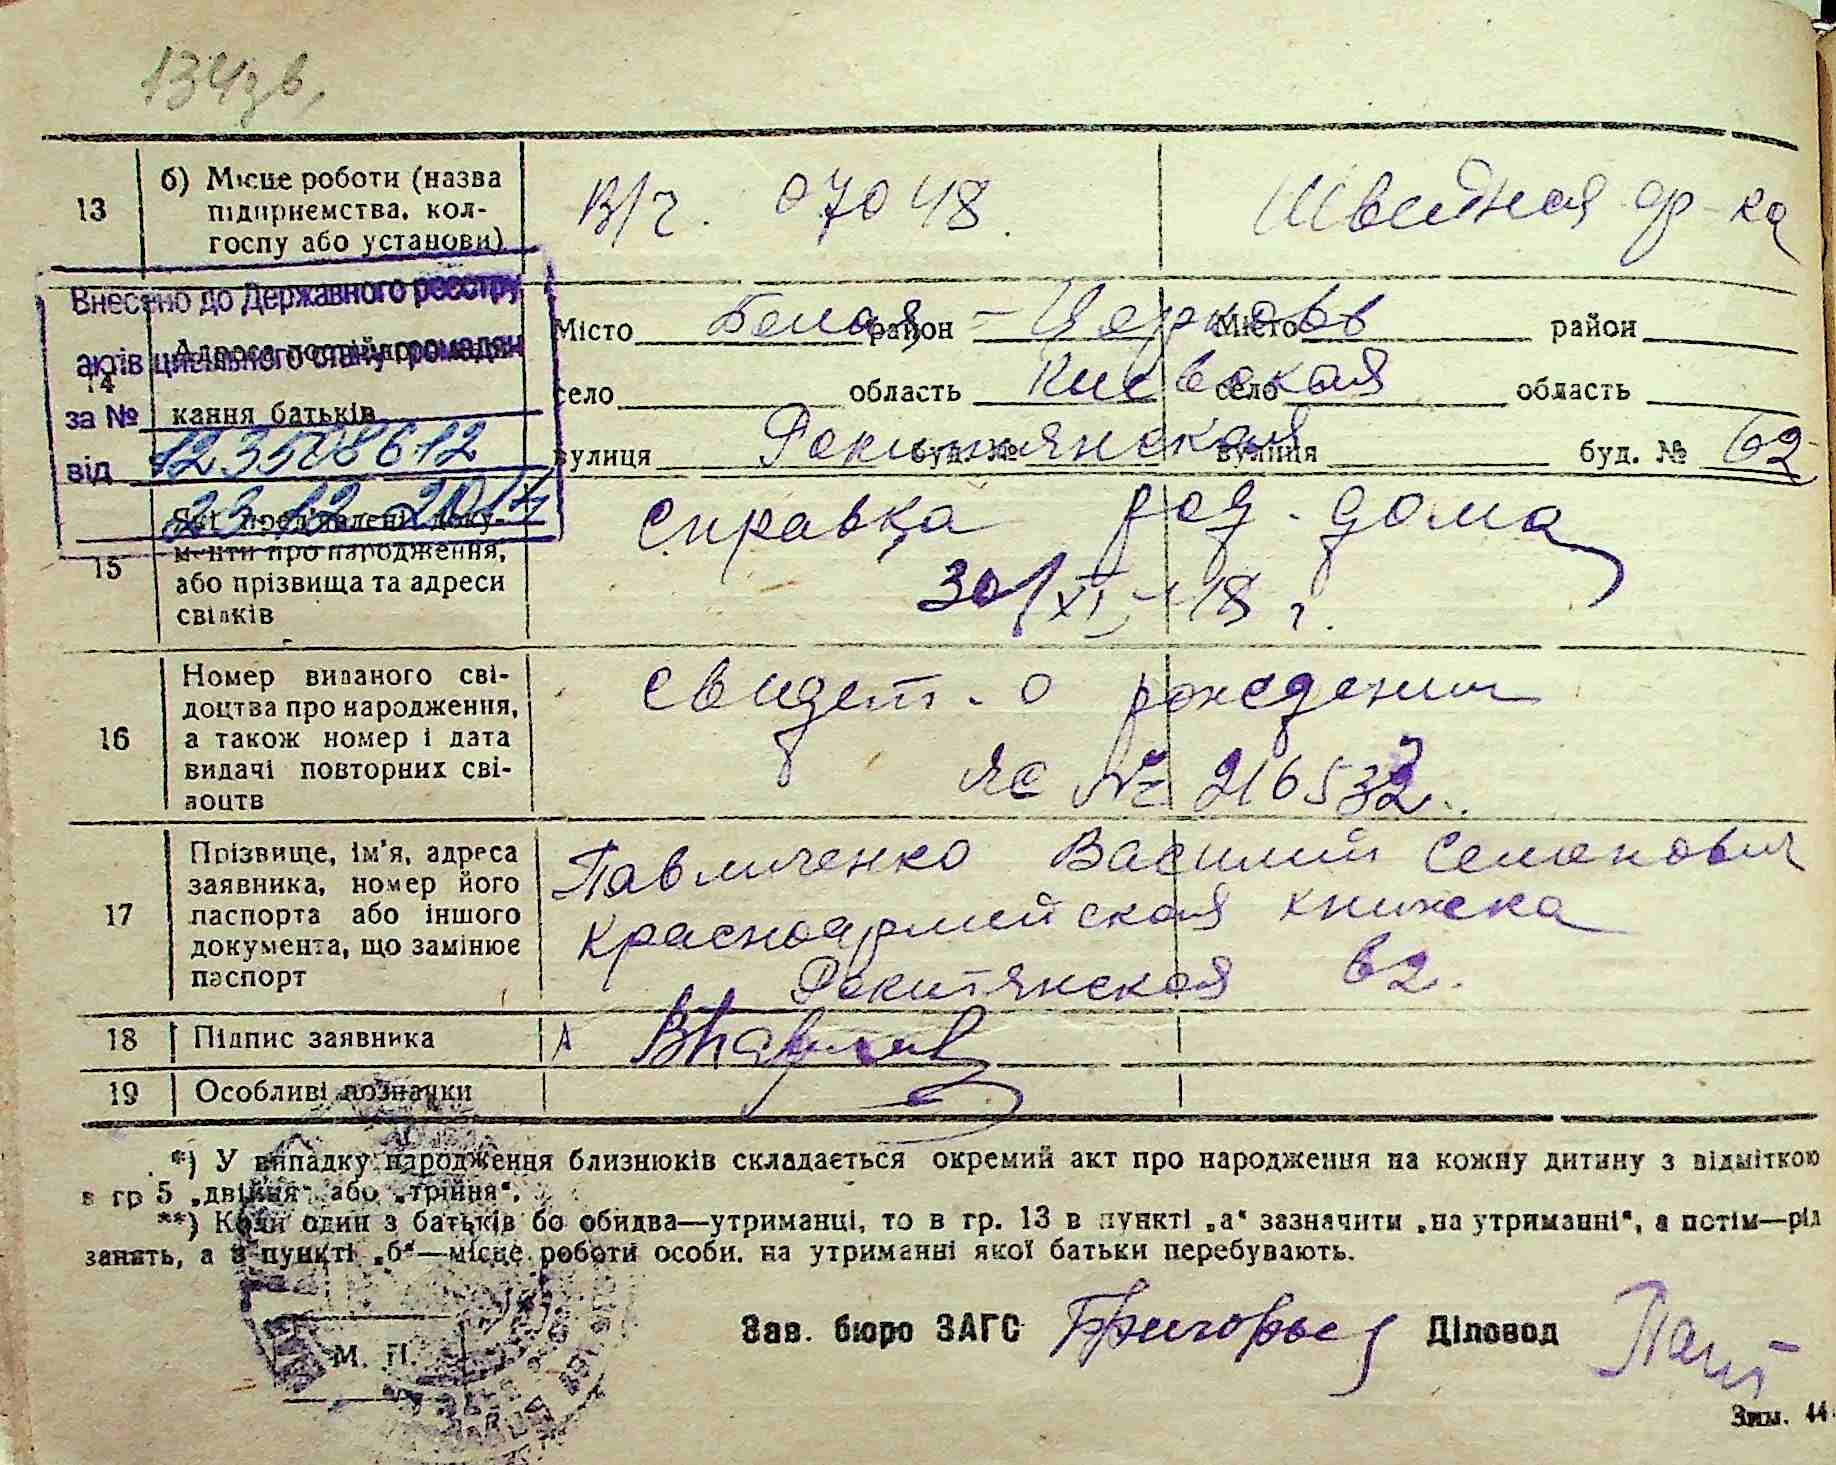 134зв.
13
б) Місце роботи (назва
підприємства, кол-
госпу або установи)
В/ч. 07048.
Швейная ф-ка
Внесено до Державного реєстру
актів цивільного стану громадян
за № 123508612
від 23.12.2014
14
кання батьків
Місто Белая - Церковь район Місто район
село область Киевская село область
вулиця Рокитнянская буд. № вулиця буд. № 62
15
Які пред'явлені доку-
менти про народження,
або прізвища та адреси
свідків
Справка род. дома
30/XI - 48 г.
16
Номер виданого сві-
доцтва про народження,
а також номер і дата
видачі повторних сві-
доцтв
Свидет. о рождении
ЯС №
17
Прізвище, ім'я, адреса
заявника, номер його
паспорта або іншого
документа, що замінює
паспорт
Павличенко Василий Семенович
красноармейская книжка
Рокитянская 62.
18
Підпис заявника
19
Особливі позначки
*) У випадку народження близнюків складається окремий акт про народження на кожну дитину з відміткою
в гр 5 „двійня" або „трійня".
**) Коли один з батьків бо обидва—утриманці, то в гр. 13 в пункті „а" зазначити „на утриманні", а потім—рід
занять, а в пункті „б"—місце роботи особи. на утриманні якої батьки перебувають.
Зав. бюро ЗАГС Григорьев Діловод
М. П.
Зам. 44